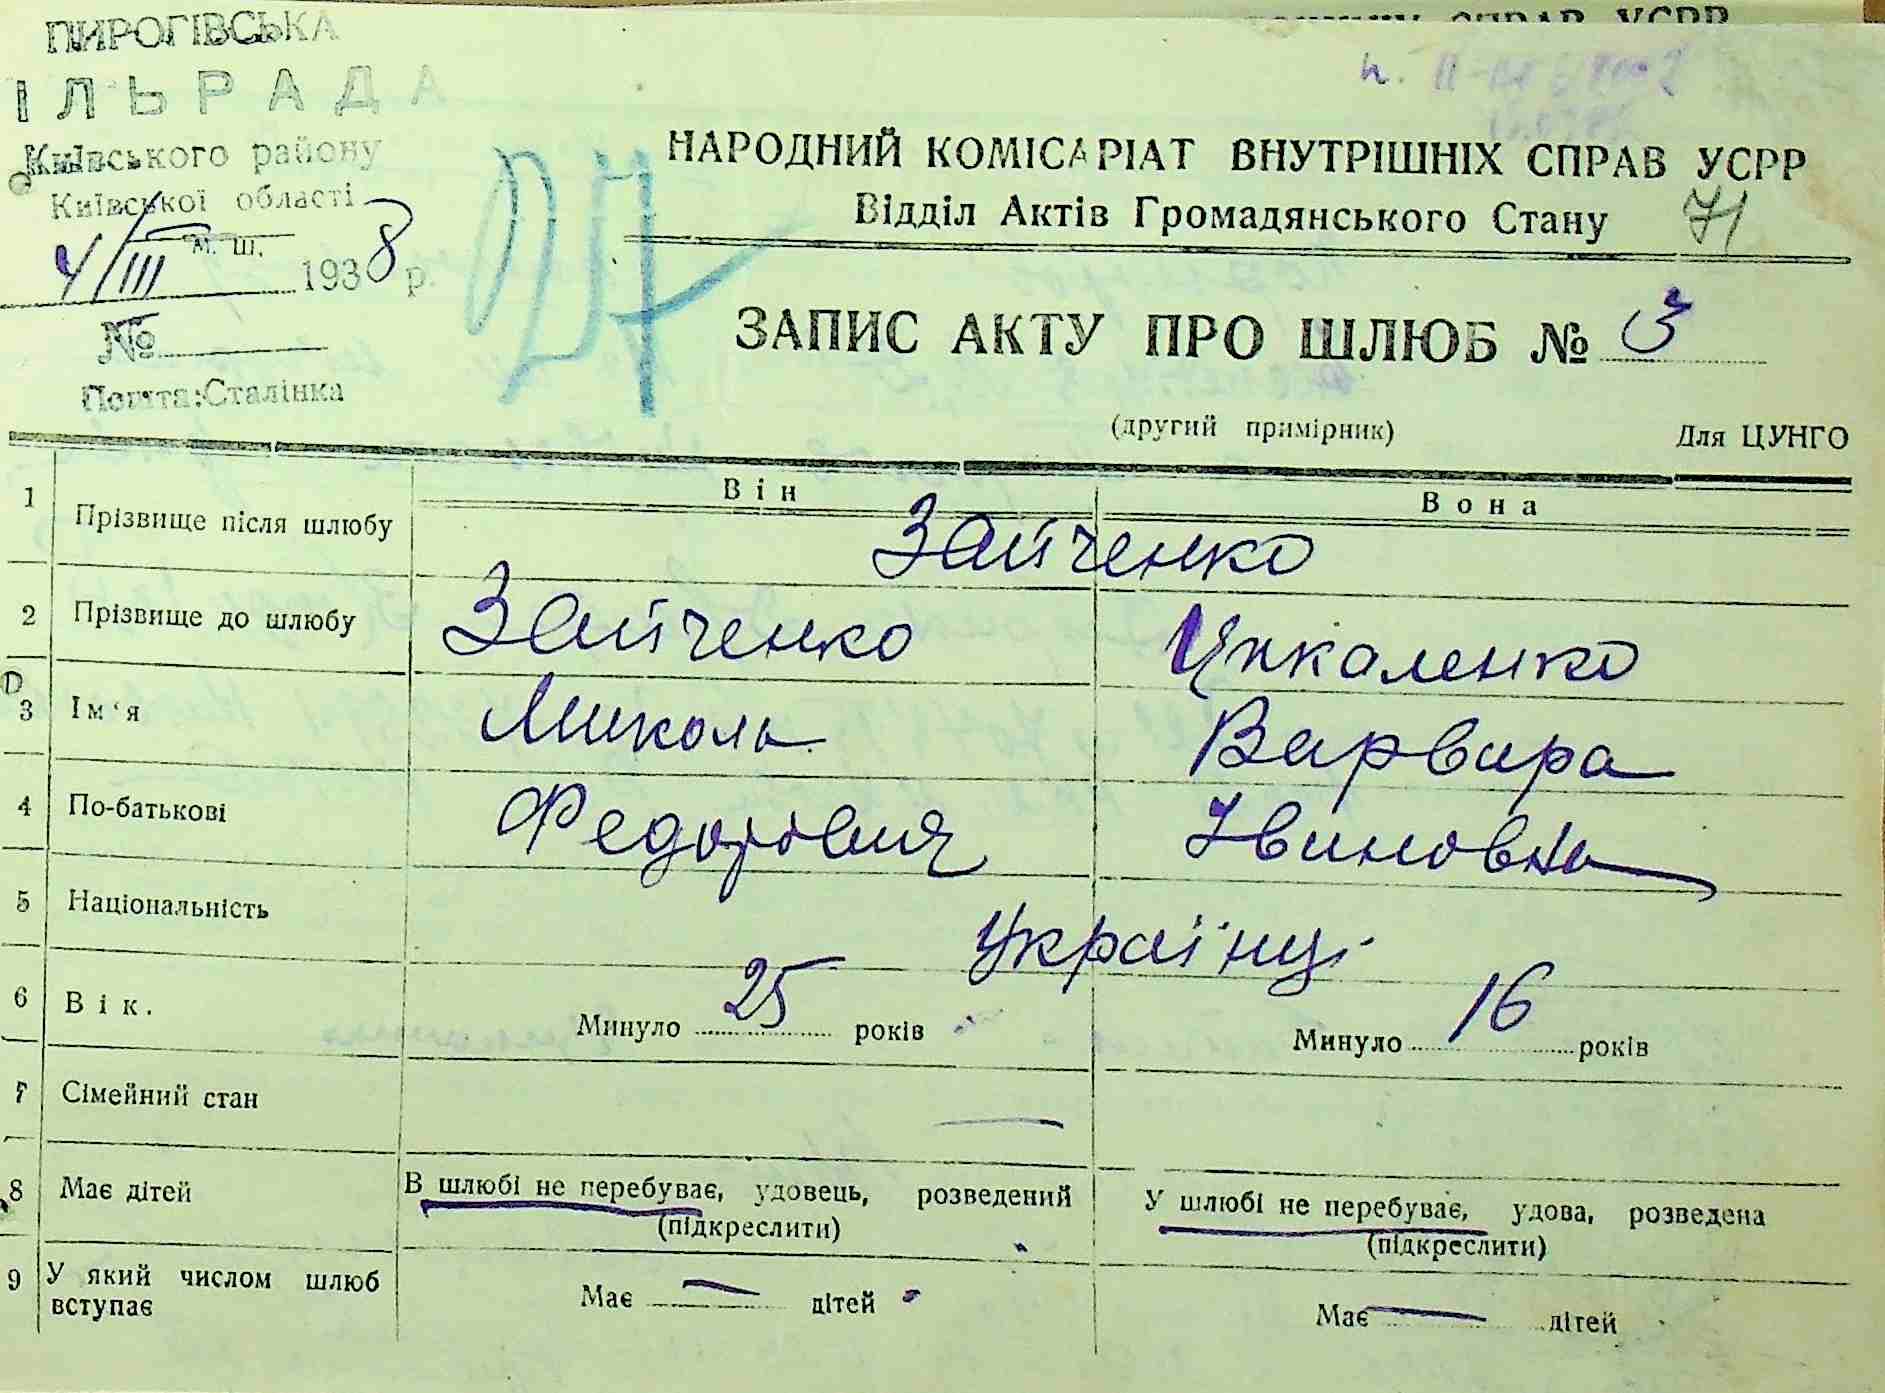 ПИРОГІВСЬКА
ІЛЬРАДА
Київського району
Київської області
м. ш.
4/III 1938 р.
№
Пошта: Сталінка
НАРОДНИЙ КОМІСАРІАТ ВНУТРІШНІХ СПРАВ УСРР
Відділ Актів Громадянського Стану 71
ЗАПИС АКТУ ПРО ШЛЮБ № 3
(другий примірник) Для ЦУНГО
Він Вона
1 Прізвище після шлюбу Зайченко
2 Прізвище до шлюбу Зайченко Цикаленко
3 Ім'я Микола Варвара
4 По-батькові Федорович Івановна
5 Національність Українці
6 Вік. Минуло 25 років Минуло 16 років
7 Сімейний стан —
8 Має дітей В шлюбі не перебуває, удовець, розведений У шлюбі не перебуває, удова, розведена
(підкреслити) (підкреслити)
9 У який числом шлюб вступає Має — дітей Має — дітей